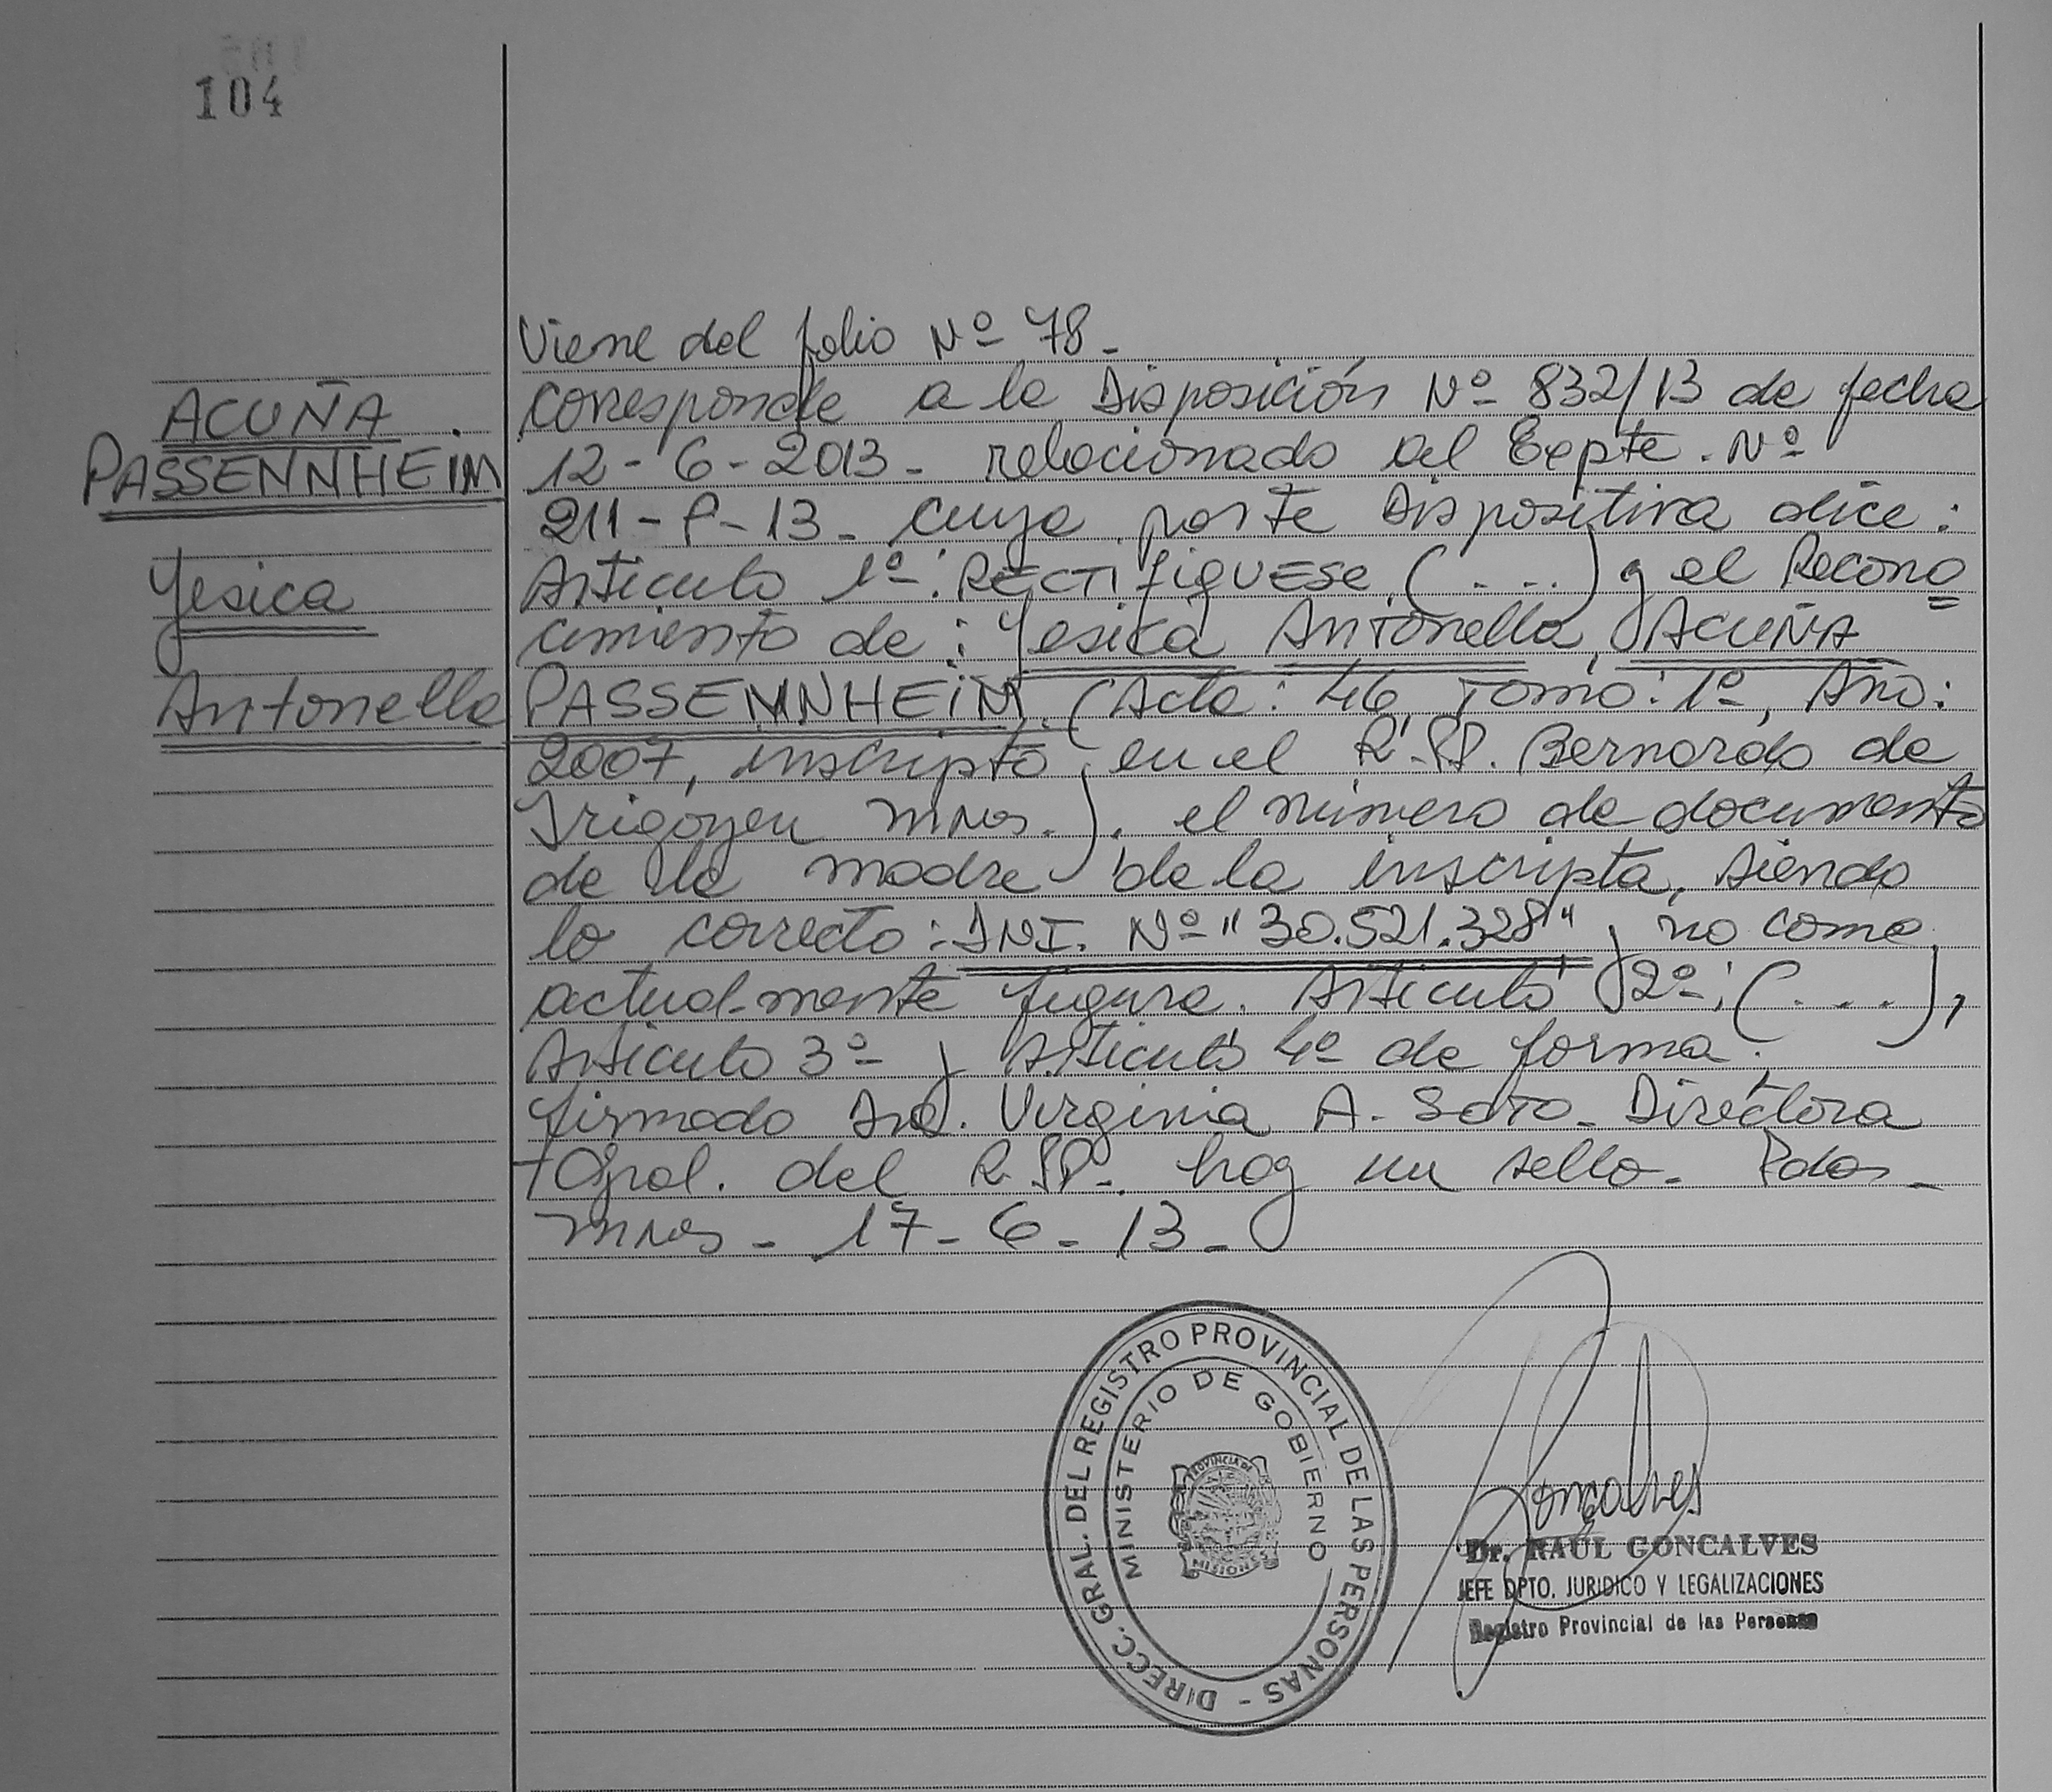 104
ACUÑA
PASSENNHEIM
Yesica
Antonella
Viene del folio Nº 78-
corresponde a la Disposición Nº 832/13 de fecha
12-6-2013- relacionado al Expte. Nº
211-P-13- cuya parte Dispositiva dice:
Artículo 1º: RECTifiquese (....) y el Recono
cimiento de: Yesica Antonella, ACUÑA
PASSENNHEIM. (Acta: 46, Tomo: 1º, Año:
2007, inscripto en el R.PP. Bernardo de
Irigoyen Mnes.). el número de documento
de la madre de la inscripta, siendo
lo correcto: DNI. Nº "30.521.328" y no como
actualmente figura. Artículo 2º: (....),
Artículo 3º y Artículo 4º de forma.
firmado Virginia A. Soto- Directora
Gral. del R.PP. hay un sello- Pdas-
Mnes- 17-6-13-
DIRECC. GRAL. DEL REGISTRO PROVINCIAL DE LAS PERSONAS -
MINISTERIO DE GOBIERNO
PROVINCIA DE
MISIONES
Goncalves
Dr. RAÚL GONCALVES
JEFE DPTO. JURIDICO Y LEGALIZACIONES
Registro Provincial de las Personas